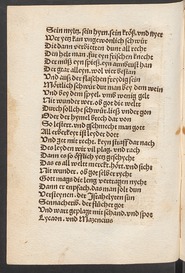 Sein myltz, sein hyrn, sein kröß, vnd nyer
Wer yetz kan vngewonlich schwür
Die dann verbieten dunt all recht
Den helt man für eyn frischen knecht
Der muß eyn spieß, eyn armbrust han
Der gtar alleyn, wol vier bestan
Vnd uß der flaschen freydig sein
Mördlich schwür dut man bey dem wein
Vnd bey dem spyel, umb wenig gelt
Nit wunder wer, ob got die welt
Durch sollche schwür, ließ vnder gon
Oder der hymel brech dar von
So lestert, vnd gschmecht man gott
All erberkeyt ist leyder dott
Vnd gat mit recht, keyn straff dar nach
Des leiden wir vil plag, vnd rach
Dann es so öfflich yetz geschycht
Das es all welt merckt, hört, vnd sicht
Nit wunder, ob got selber rycht
Gott mags die leng vertragen nycht
Dann er entpfach, das man solt dun
Versteynen, der Israhelyten sun
Sennacherib, der fluchet got
Vnd wart geplagt mit schand, vnd spot
Lycaon, vnd Mezencius